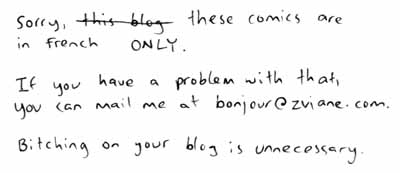 Sorry, this blog these comics are
in french ONLY.
If you have a problem with that,
you can mail me at bonjour@zviane.com.
Bitching on your blog is unnecessary.